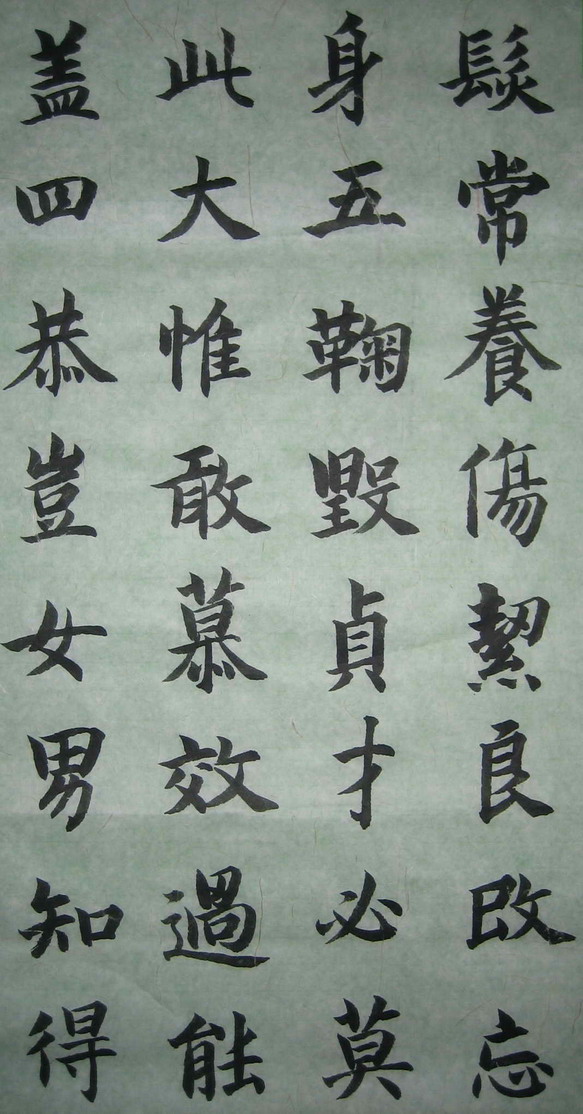 盖此身髮
四大五常
恭惟鞠養
豈敢毀傷
女慕貞絜
男效才良
知過必改
得能莫忘